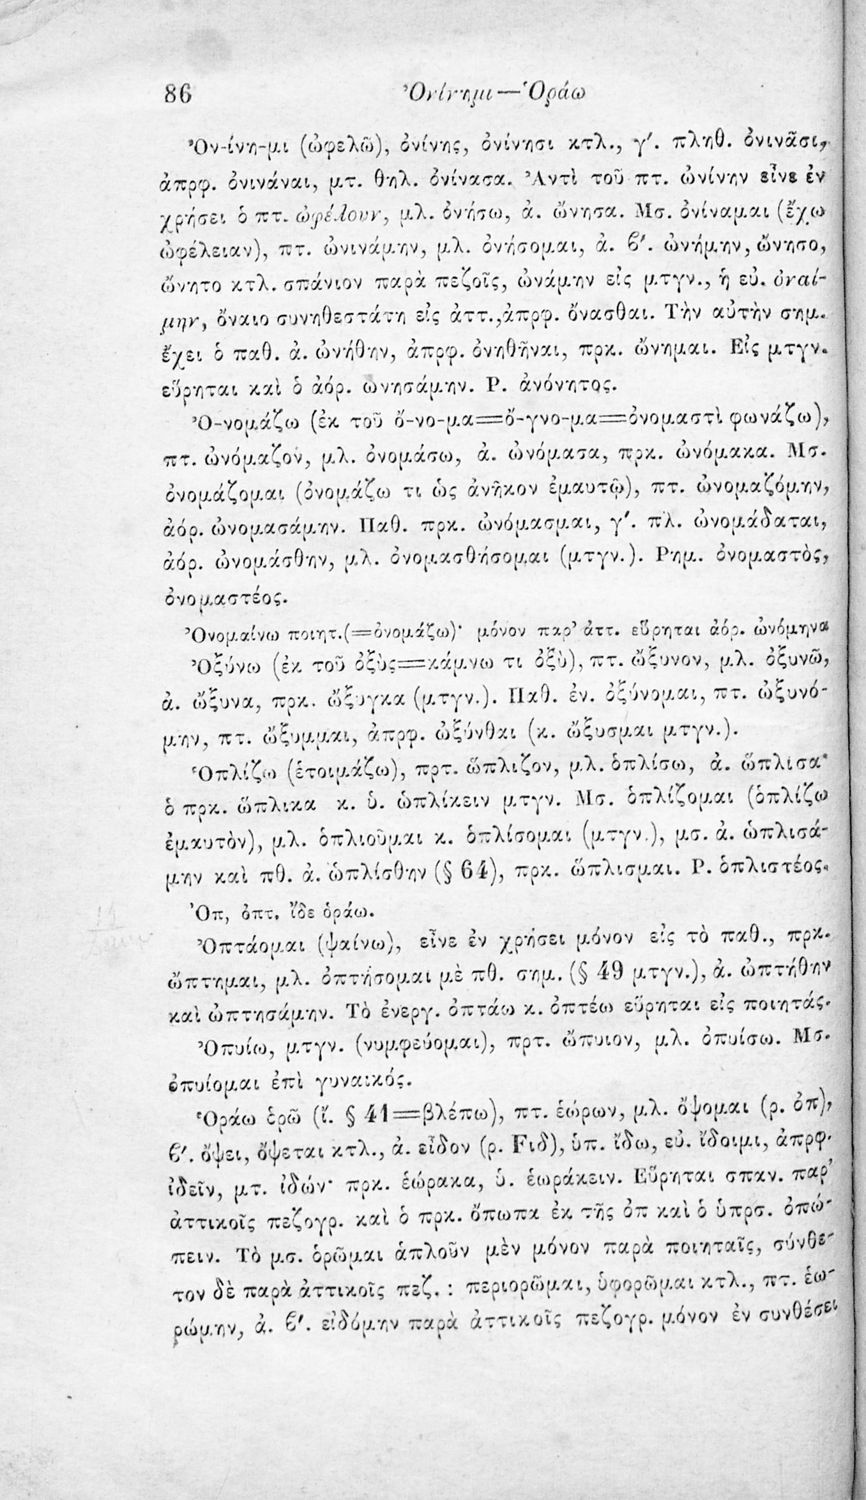 86 Ὀνίνημι—Ὁράω
Ὀν-ίνη-μι (ὠφελῶ), ὀνίνης, ὀνίνησι κτλ., γ΄. πληθ. ὀνινᾶσι,
ἀπρφ. ὀνινάναι, μτ. θηλ. ὀνίνασα. Ἀντὶ τοῦ πτ. ὠνίνην εἶνε ἐν
χρήσει ὁ πτ. ὠφέλουν, μλ. ὀνήσω, ἀ. ὤνησα. Μσ. ὀνίναμαι (ἔχω
ὠφέλειαν), πτ. ὠνινάμην, μλ. ὀνήσομαι, ἀ. ϐ΄. ὠνήμην, ὤνησο,
ὤνητο κτλ. σπάνιον παρὰ πεζοῖς, ὠνάμην εἰς μτγν., ἡ εὐ. ὀναί-
μην, ὄναιο συνηθεστάτη εἰς ἀττ., ἀπρφ. ὄνασθαι. Τὴν αὐτὴν σημ.
ἔχει ὁ παθ. ἀ. ὠνήθην, ἀπρφ. ὀνηθῆναι, πρκ. ὤνημαι. Εἰς μτγν.
εὕρηται καὶ ὁ ἀόρ. ὠνησάμην. Ρ. ἀνόνητος.
Ὀ-νομάζω (ἐκ τοῦ ὄ-νο-μα=ὄ-γνο-μα=ὀνομαστὶ φωνάζω),
πτ. ὠνόμαζον, μλ. ὀνομάσω, ἀ. ὠνόμασα, πρκ. ὠνόμακα. Μσ.
ὀνομάζομαι (ὀνομάζω τι ὡς ἀνῆκον ἐμαυτῷ), πτ. ὠνομαζόμην,
ἀόρ. ὠνομασάμην. Παθ. πρκ. ὠνόμασμαι, γ΄. πλ. ὠνομάδαται,
ἀόρ. ὠνομάσθην, μλ. ὀνομασθήσομαι (μτγν.). Ρημ. ὀνομαστὸς,
ὀνομαστέος.
Ὀνομαίνω ποιητ.(=ὀνομάζω)· μόνον παρ' ἀττ. εὕρηται ἀόρ. ὠνόμηνα
Ὀξύνω (ἐκ τοῦ ὀξὺς=κάμνω τι ὀξὺ), πτ. ὤξυνον, μλ. ὀξυνῶ,
ἀ. ὤξυνα, πρκ. ὤξυγκα (μτγν.). Παθ. ἐν. ὀξύνομαι, πτ. ὠξυνό-
μην, πτ. ὤξυμμαι, ἀπρφ. ὠξύνθαι (κ. ὤξυσμαι μτγν.).
Ὁπλίζω (ἑτοιμάζω), πρτ. ὥπλιζον, μλ. ὁπλίσω, ἀ. ὥπλισα·
ὁ πρκ. ὥπλικα κ. ὑ. ὡπλίκειν μτγν. Μσ. ὁπλίζομαι (ὁπλίζω
ἐμαυτὸν), μλ. ὁπλιοῦμαι κ. ὁπλίσομαι (μτγν.), μσ. ἀ. ὡπλισά-
μην καὶ πθ. ἀ. ὡπλίσθην (§ 64), πρκ. ὥπλισμαι. Ρ. ὁπλιστέος.
Ὀπ, ὀπτ, ἴδε ὁράω.
Ὀπτάομαι (ψαίνω), εἶνε ἐν χρήσει μόνον εἰς τὸ παθ., πρκ.
ὤπτημαι, μλ. ὀπτήσομαι μὲ πθ. σημ. (§ 49 μτγν.), ἀ. ὠπτήθην
καὶ ὠπτησάμην. Τὸ ἐνεργ. ὀπτάω κ. ὀπτέω εὕρηται εἰς ποιητάς.
Ὀπυίω, μτγν. (νυμφεύομαι), πρτ. ὤπυιον, μλ. ὀπυίσω. Μσ.
ὀπυίομαι ἐπὶ γυναικός.
Ὁράω ὁρῶ (ἴ. § 41=βλέπω), πτ. ἑώρων, μλ. ὄψομαι (ρ. ὀπ),
ϐ΄. ὄψει, ὄψεται κτλ., ἀ. εἶδον (ρ. Fιδ), ὑπ. ἴδω, εὐ. ἴδοιμι, ἀπρφ.
ἰδεῖν, μτ. ἰδών· πρκ. ἑώρακα, ὑ. ἑωράκειν. Εὕρηται σπαν. παρ'
ἀττικοῖς πεζογρ. καὶ ὁ πρκ. ὄπωπα ἐκ τῆς ὀπ καὶ ὁ ὑπρσ. ὀπώ-
πειν. Τὸ μσ. ὁρῶμαι ἁπλοῦν μὲν μόνον παρὰ ποιηταῖς, σύνθε-
τον δὲ παρὰ ἀττικοῖς πεζ. : περιορῶμαι, ὑφορῶμαι κτλ., πτ. ἑω-
ρώμην, ἀ. ϐ΄. εἰδόμην παρὰ ἀττικοῖς πεζογρ. μόνον ἐν συνθέσει